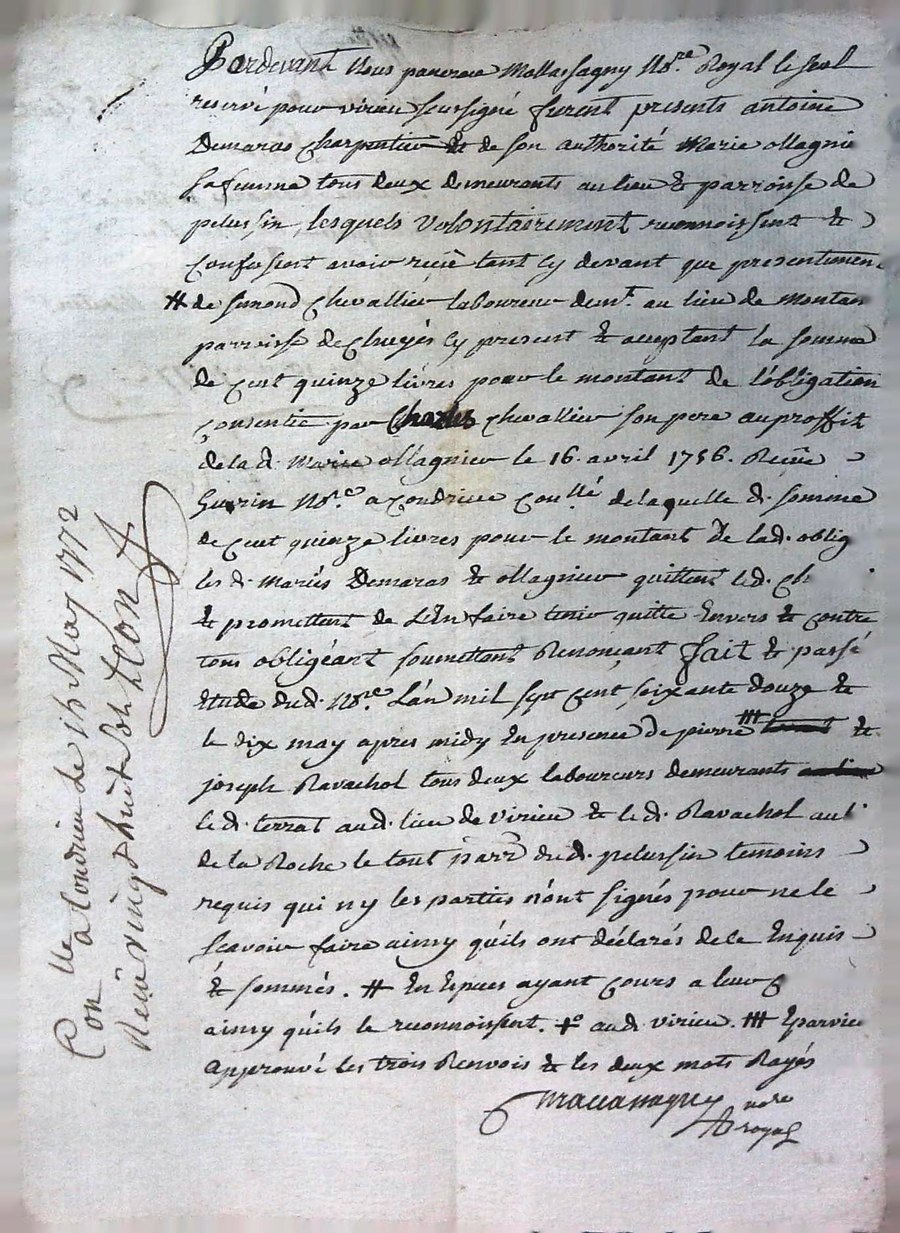 Pardevant Nous pancrace Mallassagny No.re Royal le seul
reservé pour virieu soussigné furent presents antoine
Demaras Charpentier & de son authorité Marie ollagnie
sa femme tous deux demeurants au lieu & parroisse de
pelussin, lesquels volontairement reconnoissent &
Confessent avoir reçû tant cy devant que presentement
# de simond Chevallier laboureur dem.t au lieu de montan
parroisse de Chuyés cy present & acceptant la somme
de cent quinze livres pour le montant de l'obligation
consentie par Charles Chevallier son pere au proffit
de la d. Marie ollagnier le 16. avril 1756. Reçûe
Guerin No.re a Condrieu Con.llé de laquelle d. somme
de cent quinze livres pour le montant de la d. oblig
les d. mariés Demaras & ollagnier quittent le d. Ch
& promettent de L'en faire tenir quitte Envers & contre
tous obligéant soumettant Renonçant fait & passé
étude du d. No.re L'an mil sept cent soixante douze &
le dix may apres midy En presence de pierre ⧻ &
joseph Ravachol tous deux laboureurs demeurants
le d. terrat au d. lieu de virieu & le d. Ravachol au l
de la Roche le tout parr. du d. pelussin temoins
requis qui n'y les parties n'ont signés pour ne le
scavoir faire ainsy qu'ils ont déclarés de ce Enquis
& sommés. # En Especes ayant cours a leur
ainsy qu'ils le reconnoissent. +o au d. virieu. ⧻
approuvé les trois Renvois & les deux mots Rayés
no.re
royal
Con.lle a Condrieu Le 15 May 1772
Reçû vingt huit sols